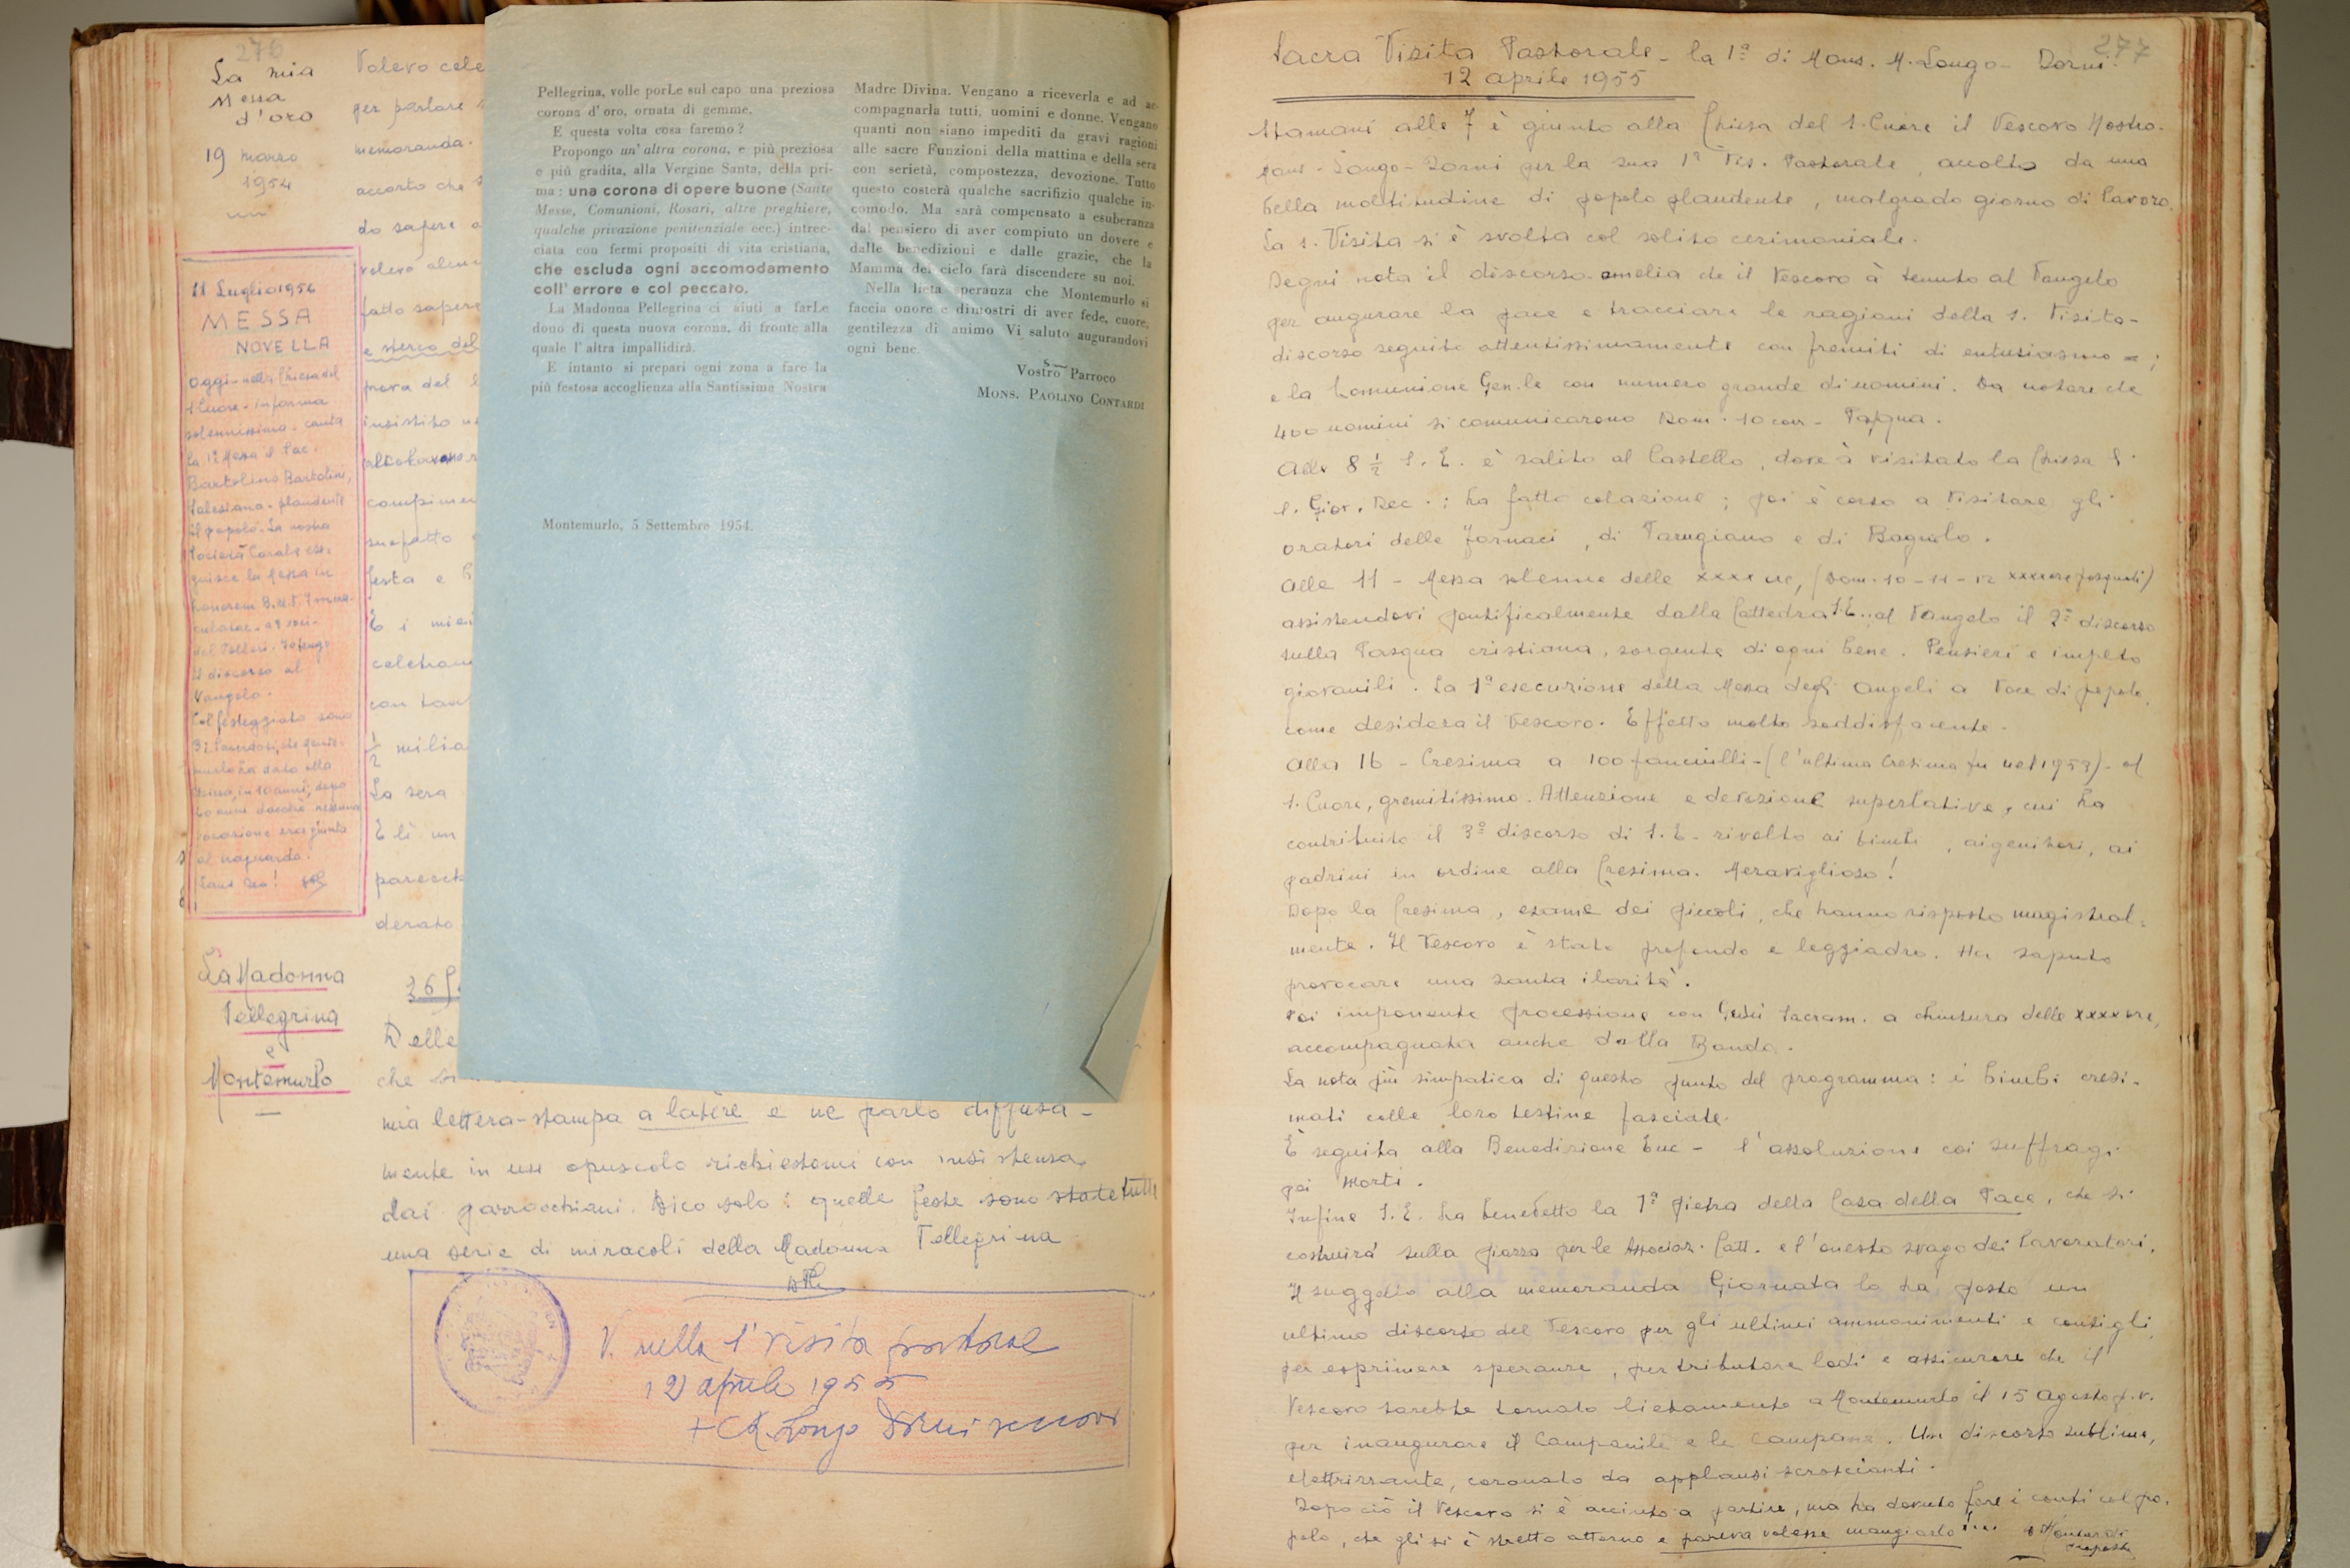 276
La mia
Messa
d'oro
19 marzo
1954
Volevo cele
per parlare
memoranda.
accorto che
do sapere a
volevo alcun
fatto sapere
e sterco del
prova del
insistito
compimen
festa e
E i miei
celebran
con tan
1/2 milia
La sera
E lì un
parecch
derato
11 Luglio 1954
MESSA
NOVELLA
Oggi - nella Chiesa del
S. Cuore - in forma
solennissima - canta
la 1ª Messa il Sac.
Bartolino Bartolini,
Salesiano - plaudente
il popolo. La nostra
Società Corale ese-
guisce la Messa in
honorem B.M.V. Immac-
ulatae - a 2 voci -
del Vittori. Io tengo
il discorso al
Vangelo.
Col festeggiato sono
3 i Sacerdoti, che Monte-
murlo ha dato alla
Chiesa, in 10 anni, dopo
60 anni dacchè nessuna
vocazione era giunta
al traguardo.
La Madonna
Pellegrina
e
Montemurlo
Delle
che
mia lettera-stampa a latere e ne parlo diffusa-
mente in un opuscolo richiestomi con insistenza
dai parrocchiani. Dico solo: quelle feste sono state tutte
una serie di miracoli della Madonna Pellegrina
V. nella 1ª Visita pastorale
12 aprile 1955
+ M. Longo Dorni vescovo
Pellegrina, volle porLe sul capo una preziosa
corona d'oro, ornata di gemme.
E questa volta cosa faremo?
Propongo un'altra corona, e più preziosa
e più gradita, alla Vergine Santa, della pri-
ma: una corona di opere buone (Sante
Messe, Comunioni, Rosari, altre preghiere,
qualche privazione penitenziale ecc.) intrec-
ciata con fermi propositi di vita cristiana,
che escluda ogni accomodamento
coll'errore e col peccato.
La Madonna Pellegrina ci aiuti a farLe
dono di questa nuova corona, di fronte alla
quale l'altra impallidirà.
E intanto si prepari ogni zona a fare la
più festosa accoglienza alla Santissima Nostra
Madre Divina. Vengano a riceverla e ad ac-
compagnarla tutti, uomini e donne. Vengano
quanti non siano impediti da gravi ragioni
alle sacre Funzioni della mattina e della sera
con serietà, compostezza, devozione. Tutto
questo costerà qualche sacrifizio qualche in-
comodo. Ma sarà compensato a esuberanza
dal pensiero di aver compiuto un dovere e
dalle benedizioni e dalle grazie, che la
Mamma del cielo farà discendere su noi.
Nella lieta speranza che Montemurlo si
faccia onore e dimostri di aver fede, cuore,
gentilezza di animo Vi saluto augurandovi
ogni bene.
Vostro Parroco
MONS. PAOLINO CONTARDI
Montemurlo, 5 Settembre 1954.
277
Sacra Visita Pastorale - la 1ª di Mons. M. Longo - Dorni.
12 aprile 1955
Stamani alle 7 è giunto alla Chiesa del S. Cuore il Vescovo Nostro.
Mons. Longo-Dorni per la sua 1ª Vis. Pastorale, accolto da una
bella moltitudine di popolo plaudente, malgrado giorno di lavoro.
La S. Visita si è svolta col solito cerimoniale.
Degni nota il discorso-omelia che il Vescovo à tenuto al Vangelo
per augurare la pace e tracciare le ragioni della S. Visita -
discorso seguito attentissimamente con fremiti di entusiasmo - ;
e la Comunione Gen.le con numero grande di uomini. Da notare che
400 uomini si comunicarono Dom. 10 corr - Pasqua.
Alle 8 1/2 S. E. è salito al Castello, dove à visitato la Chiesa
S. Giov. Dec.; ha fatto colazione; poi è corso a visitare gli
oratori delle Fornaci, di Parugiano e di Bagnolo.
Alle 11 - Messa solenne delle XXXX ore, (Dom. 10 - 11 - 12 XXXX ore pasquali)
assistendovi pontificalmente dalla Cattedra S.E., al Vangelo il 2º discorso
sulla Pasqua cristiana, sorgente di ogni bene. Pensieri e impeto
giovanili. La 1ª esecuzione della Messa degli Angeli a voce di popolo,
come desidera il Vescovo. Effetto molto soddisfacente.
Alla 16 - Cresima a 100 fanciulli - (l'ultima Cresima fu nel 1953) - al
S. Cuore, gremitissimo. Attenzione e devozione superlative, cui ha
contribuito il 3º discorso di S. E. rivolto ai bimbi, ai genitori, ai
padrini in ordine alla Cresima. Meraviglioso!
Dopo la Cresima, esame dei piccoli, che hanno risposto magistral=
mente. Il Vescovo è stato profondo e leggiadro. Ha saputo
provocare una santa ilarità.
Poi imponente processione con Gesù Sacram. a chiusura delle XXXX ore,
accompagnata anche dalla Banda.
La nota più simpatica di questo punto del programma: i bimbi cresi-
mati colle loro testine fasciate.
È seguita alla Benedizione Euc - l'assoluzione coi suffragi
pei Morti.
Infine S. E. ha benedetto la 1ª pietra della Casa della Pace, che si
costruirà sulla piazza per le Associaz. Catt. e l'onesto svago dei lavoratori.
Il suggello alla memoranda Giornata lo ha posto un
ultimo discorso del Vescovo per gli ultimi ammonimenti e consigli,
per esprimere speranze, per tributare lodi e assicurare che il
Vescovo sarebbe tornato lietamente a Montemurlo il 15 Agosto p.v.
per inaugurare il Campanile e le Campane. Un discorso sublime,
elettrizzante, coronato da applausi scroscianti.
Dopo ciò il Vescovo si è accinto a partire, ma ha dovuto fare i conti col po-
polo, che gli si è stretto attorno e pareva volesse mangiarlo!...